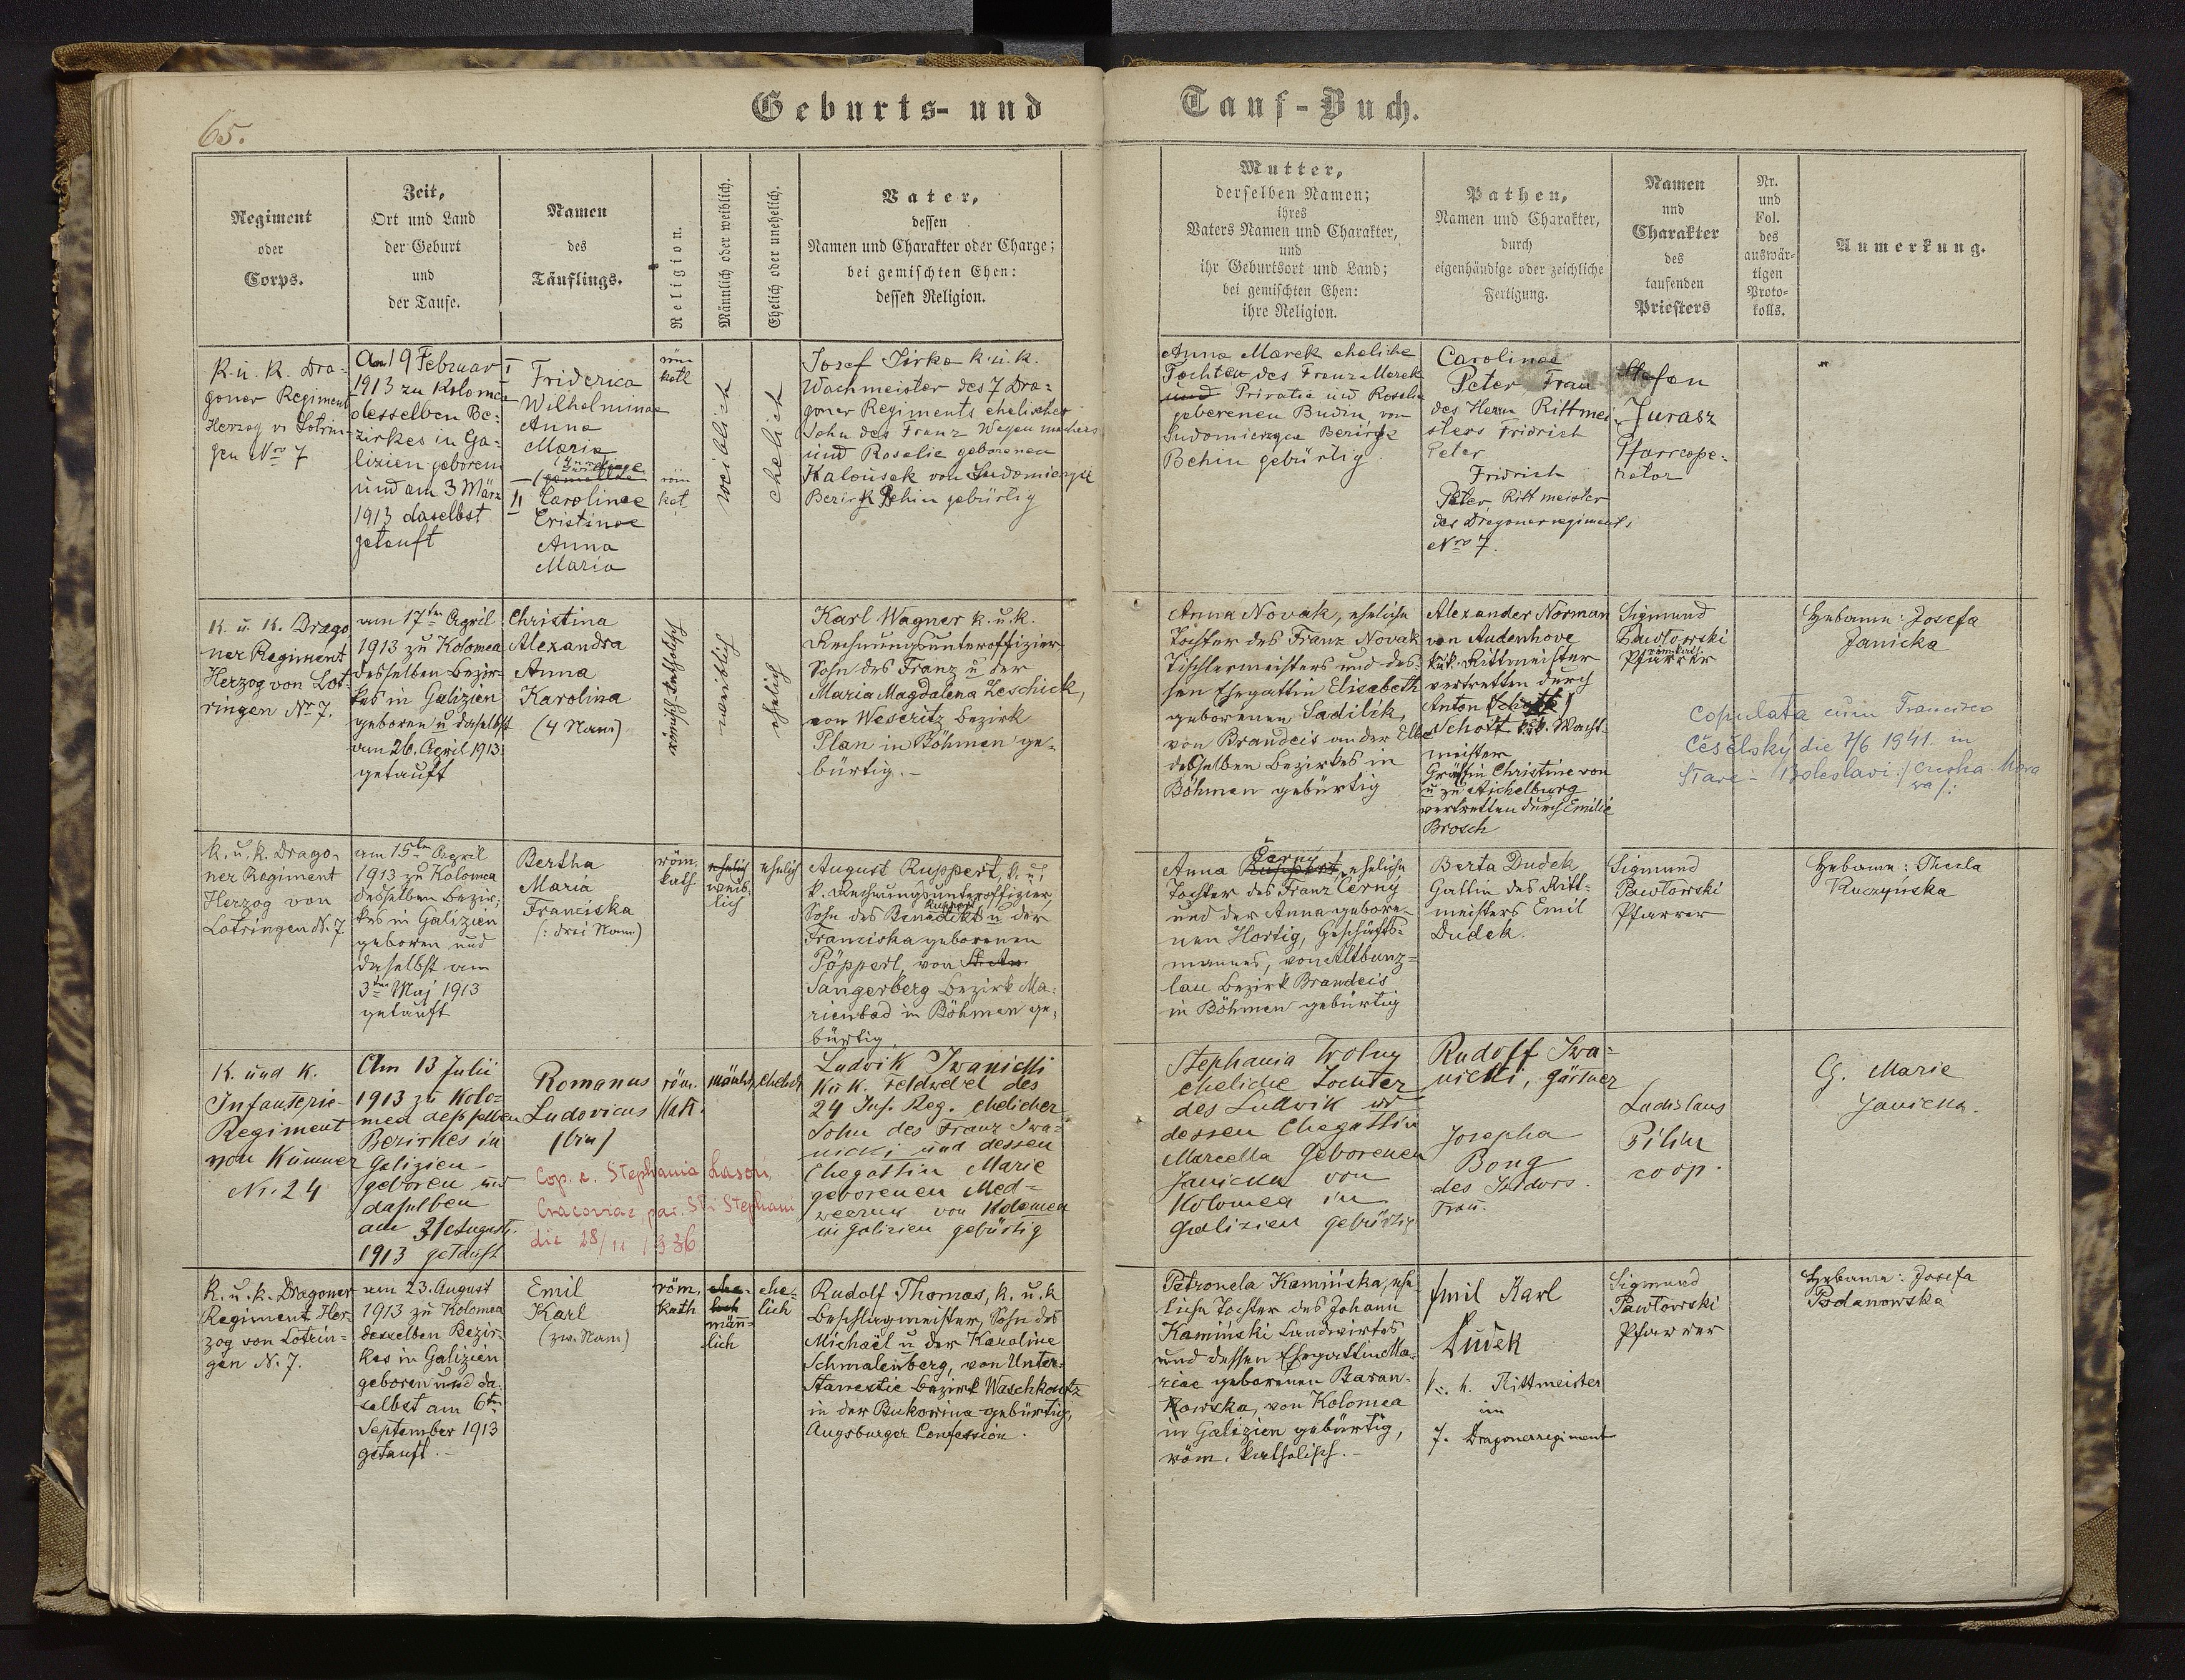 65.
Geburts- und
Tauf-Buch.
Regiment
oder
Corps.
Zeit,
Ort und Land
der Geburt
und
der Taufe.
Namen
des
Täuflings.
Religion.
Männlich oder weiblich.
Ehelich oder unehelich.
Vater,
dessen
Namen und Charakter oder Charge;
bei gemischten Ehen:
dessen Religion.
Mutter,
derselben Namen;
ihres
Vaters Namen und Charakter,
und
ihr Geburtsort und Land;
bei gemischten Ehen:
ihre Religion.
Pathen,
Namen und Charakter,
durch
eigenhändige oder zeichliche
Fertigung.
Namen
und
Charakter
des
taufenden
Priesters
Nr.
und
Fol.
des
auswär-
tigen
Proto-
kolls.
Anmerkung.
K. u. K. Dra-
goner Regiment
Herzog v. Lotrin-
gen Nro 7
Am 19 Februar
1913 zu Kolomea
desselben Be-
zirkes in Ga-
lizien geboren
und am 3 März
1913 daselbst
getauft
I Friderica
Wilhelminae
Anna
Maria
II Carolinae
Cristinae
Anna
Maria
röm
katl
röm
kat
weiblich
ehelich
Josef Jirka k. u. k.
Wachmeister des 7 Dra-
goner Regiments ehelicher
Sohn des Franz Wagenmachers
und Rosalie geborenen
Kalousek von Sudomieryc
Bezirk Bechin gebürtig
Anna Marek eheliche
Tochter des Franz Marek
und Privatie und Rosalia
geborenen Budin von
Sudomierzyce Bezirk
Bechin gebürtig
Carolinae
Peter Frau
des Herrn Rittmei-
sters Fridrich
Peter
Fridrich
Peter, Rittmeister
des Dragonerregiments
Nro 7.
Stefan
Jurasz
Pfarrcope-
rator
K. u. K. Drago
ner Regiment
Herzog von Lot-
ringen Nr 7.
am 17ten April
1913 zu Kolomea
desselben Bezir-
kes in Galizien
geboren u daselbst
am 26. April 1913
getauft
Christina
Alexandra
Anna
Karolina
(4 Nam)
römisch-katholisch
weiblich
ehelich
Karl Wagner k. u. k.
Rechnungsunteroffizier
Sohn des Franz u der
Maria Magdalena Zeschick,
von Weseritz Bezirk
Plan in Böhmen ge-
bürtig.-
Anna Novak, eheliche
Tochter des Franz Novak
Tischlermeisters und des-
sen Ehegattin Elisabeth
geborenen Sadilik,
von Brandeis an der Elbe
desselben Bezirkes in
Böhmen gebürtig
Alexander Norman
von Audenhove
k.u.k. Rittmeister
vertretten durch
Anton
Schott k.u.k. Wacht-
meister
Gräfin Christine von
u zu Aichelburg
vertretten durch Emilie
Brosch
Sigmund
Pawłowski
röm. kath.
Pfarrer
Hebame: Josefa
Janicka
Copulata cum Francisco
Čěsělský die 7/6 1941. in
Stare - Boleslavi
K. u. k. Drago-
ner Regiment
Herzog von
Lotringen N. 7.
am 15ten April
1913 zu Kolomea
desselben Bezir-
kes in Galizien
geboren und
daselbst am
3ten Maj 1913
getauft
Bertha
Maria
Franciska
(: drei Nam:)
röm.
kath.
ehelich
weib-
lich
ehelich
August Ruppert, k. u.
k. Rechnungsunteroffizier,
Ruppert
Sohn des Benedikt u der
Franziska geborenen
Pöpperl, von
Sangerberg Bezirk Ma-
rienbad in Böhmen ge-
bürtig.
Černy
Anna Ruppert, eheliche
Tochter des Franz Černy
und der Anna gebore-
nen Hortig, Geschäfts-
mannes, von Altbunz-
lau Bezirk Brandeis
in Böhmen gebürtig
Berta Dudek
Gattin des Ritt-
meisters Emil
Dudek.
Sigmund
Pawłowski
Pfarrer
Hebame: Thecla
Ruczyńska
K. und K.
Infanterie-
Regiment
von Kummer
Nr. 24
Am 13 Julii
1913 zu Kolo-
mea desselben
Bezirkes in
Galizien
geboren und
daselben
am 31 August
1913 getauft
Romanus
Ludovicus
(bin)
Cop. c. Stephania Lasoń
Cracoviae par. Sti Stephani
die 28/11 1936
röm.
Kath.
männl.
ehelich
Ludwik Iwanicki
K u K. Feldwebel des
24 Inf. Reg. ehelicher
Sohn des Franz Iwa-
nicki und dessen
Ehegattin Marie
geborenen Med-
von Kolomea
in Galizien gebürtig
Stephania Wolny
eheliche Tochter
des Ludwik und
dessen Ehegattin
Marcella Geborenen
Janicka von
Kolomea in
Galizien gebürtig
Rudolf Iwa-
nicki, Gärtner
Josepha
Bong
des Isidors
Frau.
Ladislaus
Pilin
coop.
H. Marie
Janicka.
K. u. k. Dragoner
Regiment Her-
zog von Lotrin-
gen N. 7.
am 23. August
1913 zu Kolomea
desselben Bezir-
kes in Galizien
geboren und da-
selbst am 6ten
September 1913
getauft.-
Emil
Karl
(zw. Nam)
röm.
kath
männ-
lich
ehe-
lich
Rudolf Thomas, k. u. k
Beschlagmeister, Sohn des
Michaël u der Karoline
Schmalenberg, von Unter-
Stanestie Bezirk Waschkoutz
in der Bukowina gebürtig,
Augsburger Confession.
Petronela Kamińska, ehe-
liche Tochter des Johann
Kamiński Landwirtes
und dessen Ehegattin Ma-
riae geborenen Baran-
kowska, von Kolomea
in Galizien gebürtig,
röm. katholisch.-
Emil Karl
Dudek
k. u. k. Rittmeister
im
7. Dragonerregiment
Sigmund
Pawłowski
Pfarrer
Hebame: Josefa
Bodanowska